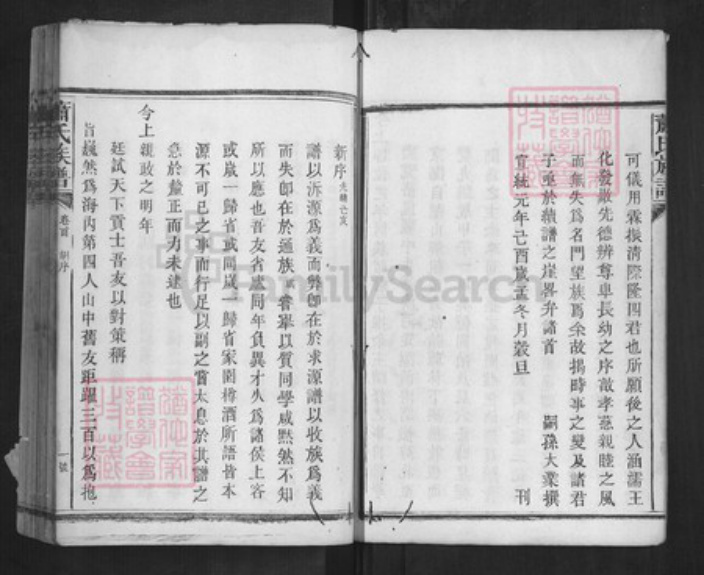 蕭氏族譜
可儀用霖振清際隆四君也所願後之人涵濡王
化發敭先德辨尊卑長幼之序敵孝慈親睦之風
而無失爲名門望族焉余故揭時事之變及諸君
子亟於續譜之崖畧弁諸首
宣統元年己酉歲孟冬月穀旦 嗣孫大業撰 刊
新序 光緒
譜以泝源爲義而弊卽在於求源譜以收族爲義
而失卽在於通族 嘗舉以質同學咸默然不知
所以應也吾友省盦同年負異才久爲諸侯上客
或歲一歸省或間歲一歸省家園樽酒所語皆本
源不可已之事而行足以副之嘗太息於其譜之
急於釐正而力未逮也
今上親政之明年
廷試天下貢士吾友以對策稱
旨巍然爲海內第四人山中舊友距躍三百以爲抱
蕭氏族譜 卷首 新序 一 號
FamilySearch